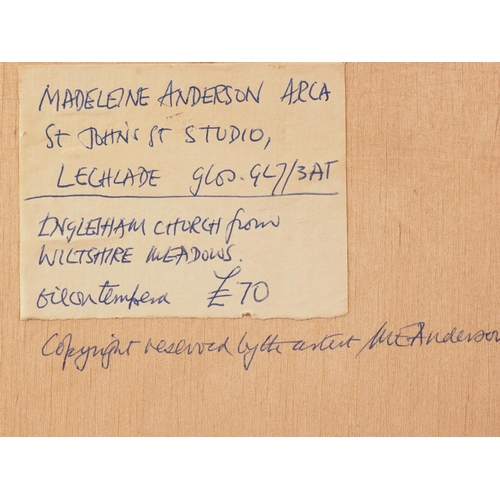 MADELEINE ANDERSON ARCA
St JOHN'S St STUDIO,
LECHLADE GLOS. GL7/3AT
INGLESHAM CHURCH from
WILTSHIRE MEADOWS.
oil on tempera £70
Copyright reserved by the artist M E Anderson